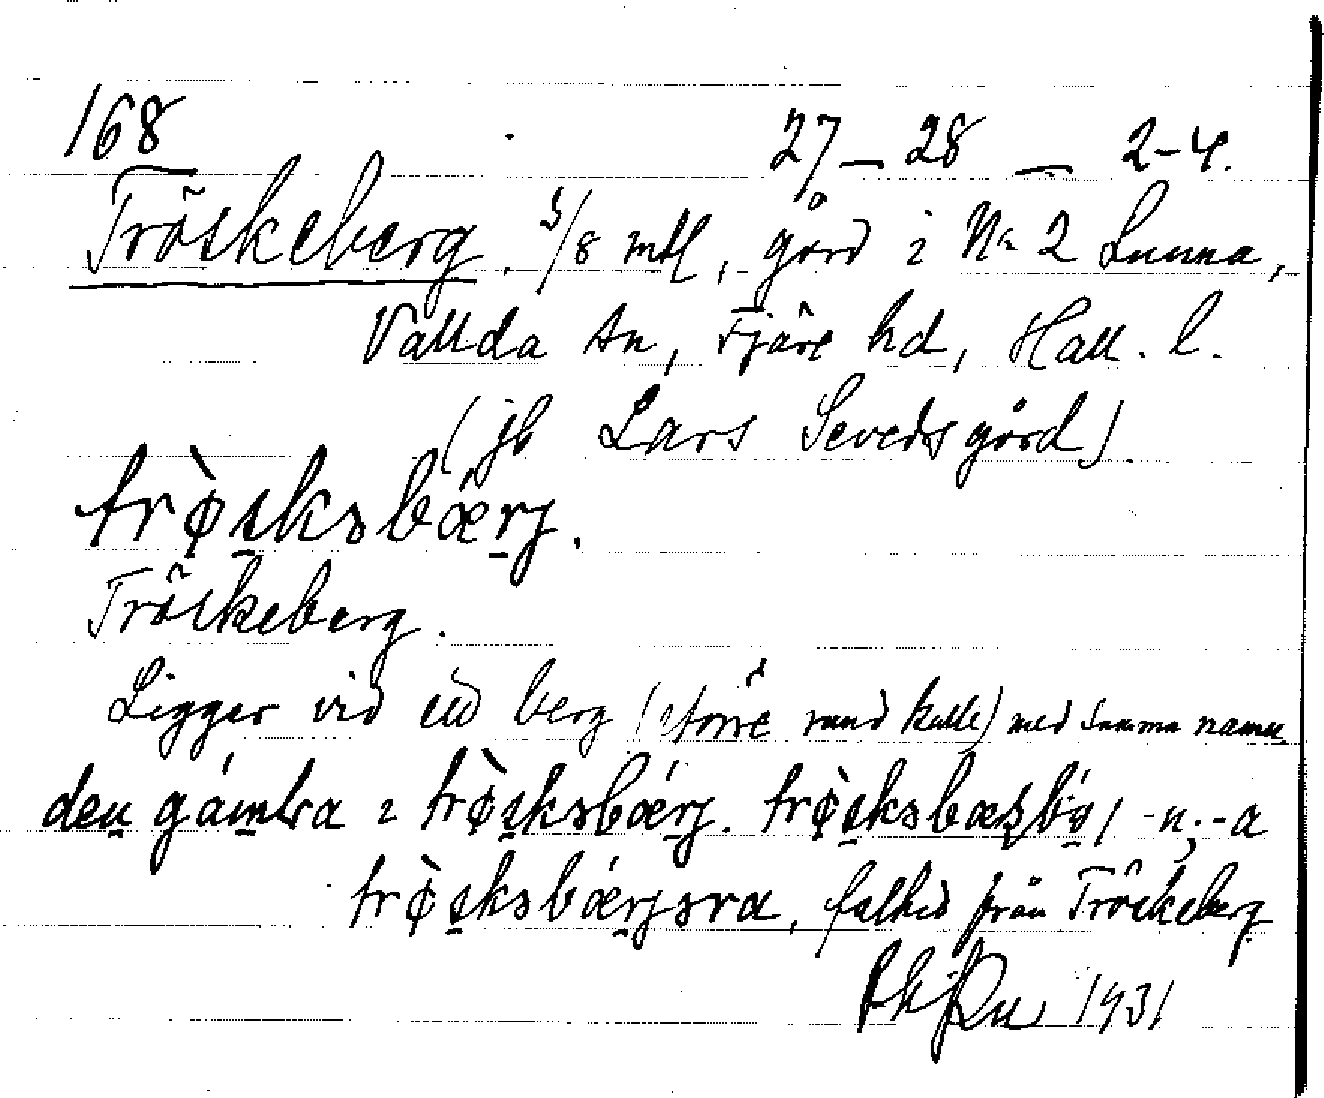 168 27 – 28 – 2-4.
Tröskeberg, 5/8 mtl, gård i No 2 Lunna,
Vallda sn, Fjäre hd, Hall. l.
(jb Lars Severs gård).
trø̀skəbǽrj.
Tröskeberg.
Ligger vid ett berg (större rund kulle) med samma namn
den gámla i trø̀skəbǽrj. trø̀skəbæsbó/ -n; -a
trø̀skəbǽrjəra, folket från Tröskeberg
1931